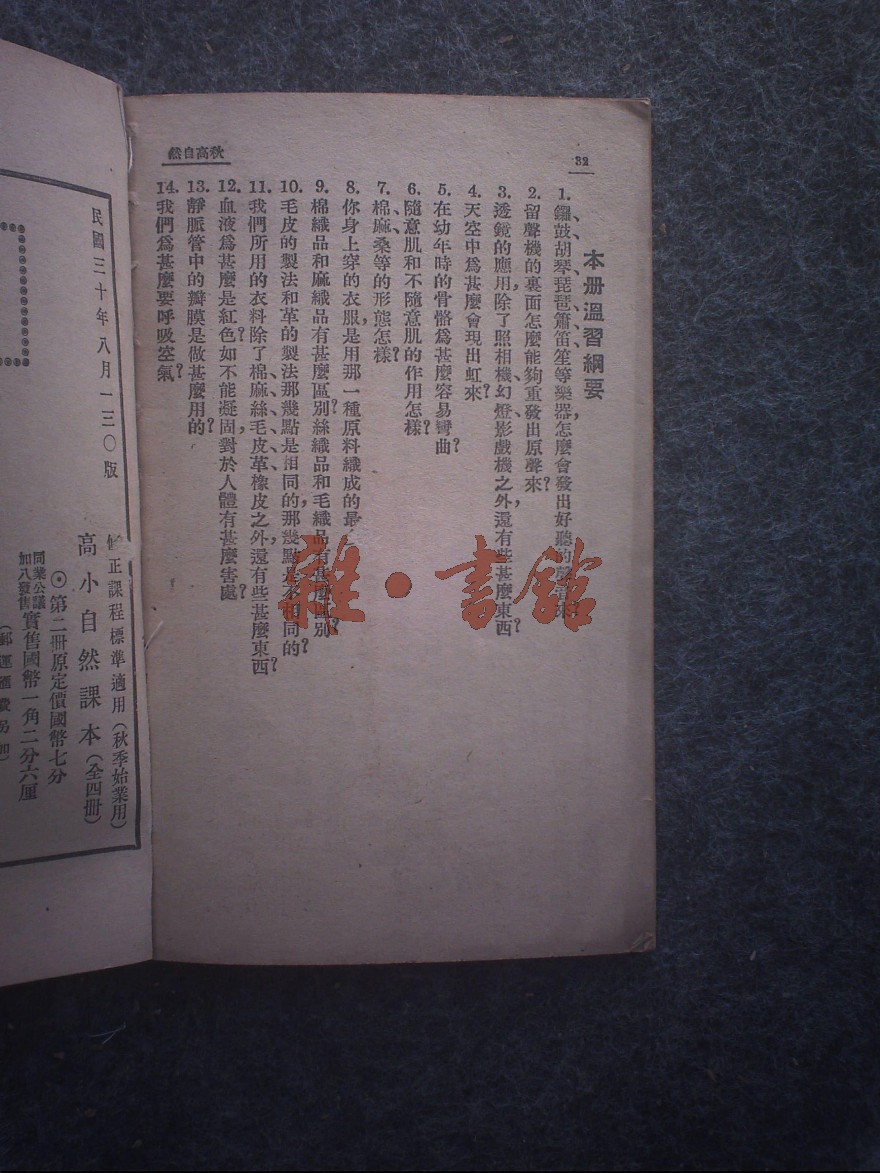 32
秋高自然
本册溫習綱要
1. 鑼、鼓、胡琴、琵琶、簫、笛、笙等樂器,怎麼會發出好聽的聲音來?
2. 留聲機的裏面怎麼能夠重發出原聲來?
3. 透鏡的應用,除了照相機、幻燈、影戲機之外,還有些甚麼東西?
4. 天空中爲甚麼會現出虹來?
5. 在幼年時的骨骼爲甚麼容易彎曲?
6. 隨意肌和不隨意肌的作用怎樣?
7. 棉、麻、桑等的形態怎樣?
8. 你身上穿的衣服,是用那一種原料織成的最
9. 棉織品和麻織品有甚麼區別?絲織品和毛織品有甚麼區別?
10. 毛皮的製法和革的製法那幾點是相同的,那幾點是不相同的?
11. 我們所用的衣料除了棉、麻、絲、毛、皮、革、橡皮之外,還有些甚麼東西?
12. 血液爲甚麼是紅色?如不能凝固,對於人體有甚麼害處?
13. 靜脈管中的瓣膜是做甚麼用的?
14. 我們爲甚麼要呼吸空氣?
修正課程標準適用(秋季始業用)
高小自然課本(全四册)
⊙第二册原定價國幣七分
同業公議
加八發售
實售國幣一角二分六厘
(郵運匯費另加)
民國三十年八月一三〇版
雜·書館